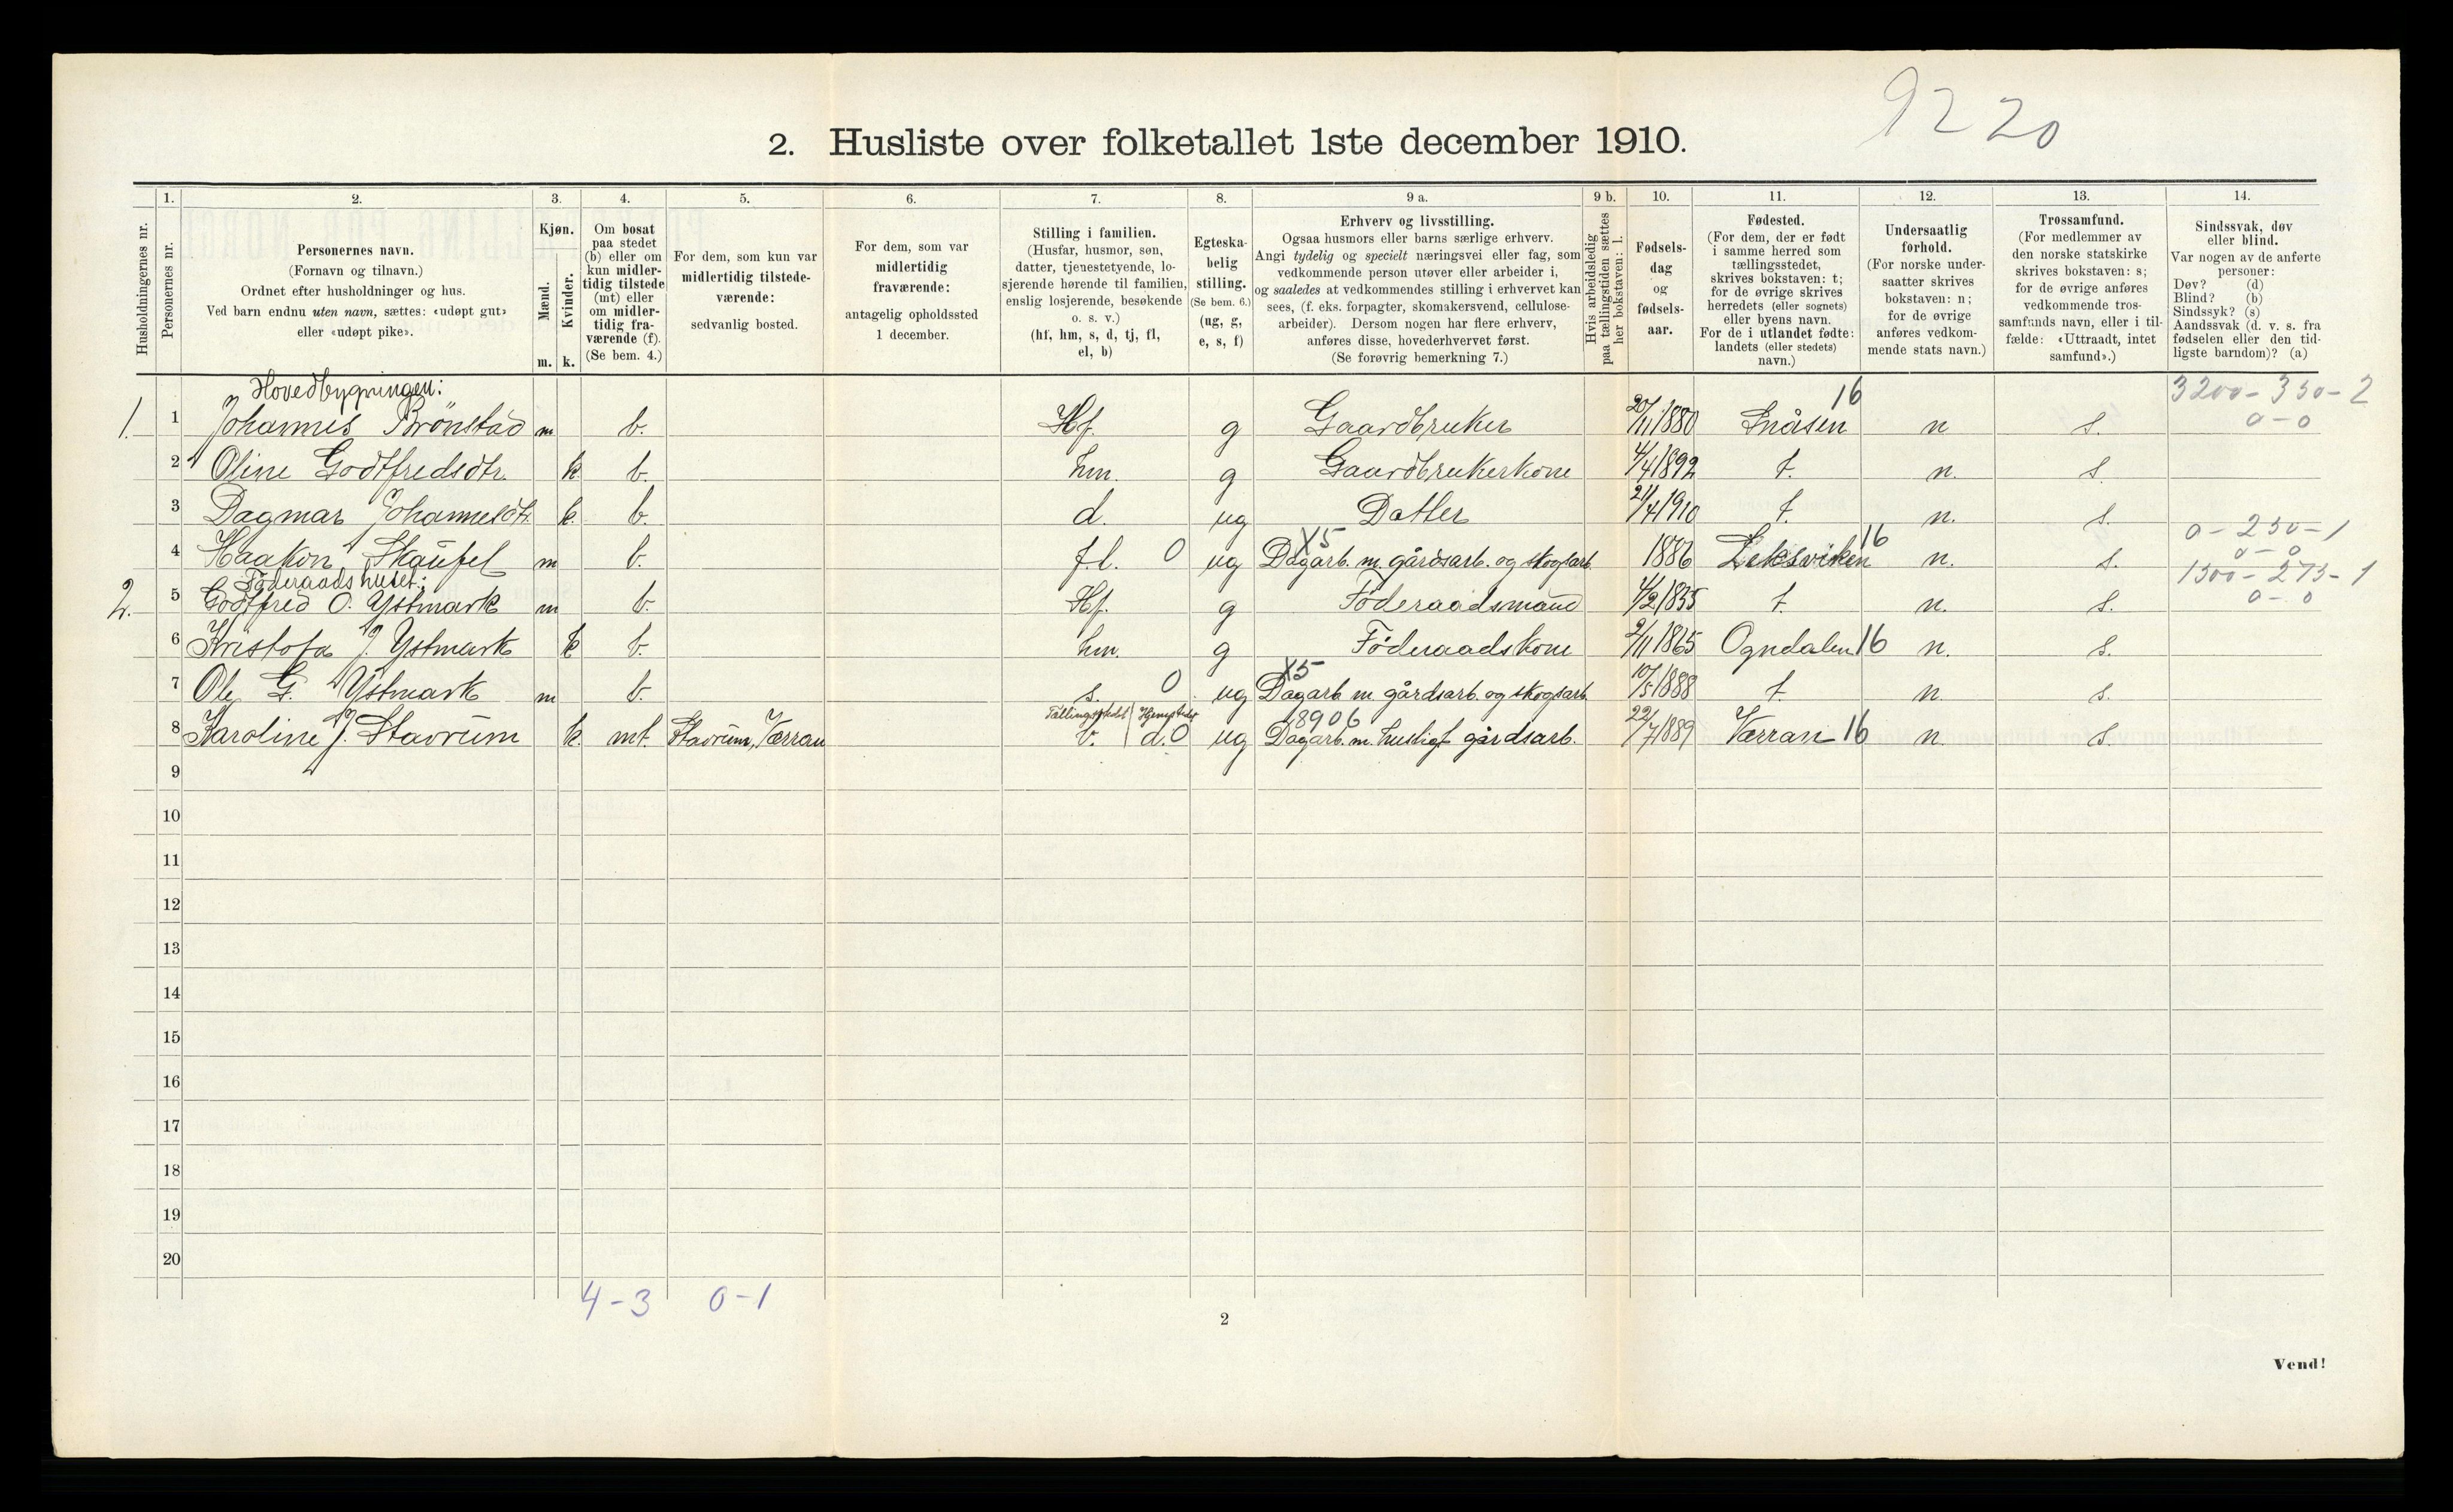 9220
2. Husliste over folketallet 1ste december 1910.
Husholdningernes nr.
1.
Personernes nr.
2.
Personernes navn.
(Fornavn og tilnavn.)
Ordnet efter husholdninger og hus.
Ved barn endnu uten navn, sættes: «udøpt gut»
eller «udøpt pike».
3.
Kjøn.
Mænd.
m.
Kvinder.
k.
4.
Om bosat
paa stedet
(b) eller om
kun midler-
tidig tilstede
(mt) eller
om midler-
tidig fra-
værende (f).
(Se bem. 4.)
5.
For dem, som kun var
midlertidig tilstede-
værende:
sedvanlig bosted.
6.
For dem, som var
midlertidig
fraværende:
antagelig opholdssted
1 december.
7.
Stilling i familien.
(Husfar, husmor, søn,
datter, tjenestetyende, lo-
sjerende hørende til familien,
enslig losjerende, besøkende
o. s. v.)
(hf, hm, s, d, tj, fl,
el, b)
8.
Egteska-
belig
stilling.
(Se bem. 6.)
(ug, g,
e, s, f)
9 a.
Erhverv og livsstilling.
Ogsaa husmors eller barns særlige erhverv.
Angi tydelig og specielt næringsvei eller fag, som
vedkommende person utøver eller arbeider i,
og saaledes at vedkommendes stilling i erhvervet kan
sees, (f. eks. forpagter, skomakersvend, cellulose-
arbeider). Dersom nogen har flere erhverv,
anføres disse, hovederhvervet først.
(Se forøvrig bemerkning 7.)
9 b.
Hvis arbeidsledig
paa tællingstiden sættes
her bokstaven: l.
10.
Fødsels-
dag
og
fødsels-
aar.
11.
Fødested.
(For dem, der er født
i samme herred som
tællingsstedet,
skrives bokstaven: t;
for de øvrige skrives
herredets (eller sognets)
eller byens navn.
For de i utlandet fødte:
landets (eller stedets)
navn.)
12.
Undersaatlig
forhold.
(For norske under-
saatter skrives
bokstaven: n;
for de øvrige
anføres vedkom-
mende stats navn.)
13.
Trossamfund.
(For medlemmer av
den norske statskirke
skrives bokstaven: s;
for de øvrige anføres
vedkommende tros-
samfunds navn, eller i til-
fælde: «Uttraadt, intet
samfund».)
14.
Sindssvak, døv
eller blind.
Var nogen av de anførte
personer:
Døv? (d)
Blind? (b)
Sindssyk? (s)
Aandssvak (d. v. s. fra
fødselen eller den tid-
ligste barndom)? (a)
Hovedbygningen: 16 3200-350-2
1. 1 Johannes Brönstad m b. Hf. g Gaardbruker 20/11 1880 Snåsen n s. 0-0
2 Oline Godtfredsdtr. k b. hm. g Gaardbrukerkone 4/4 1892 t. n. s.
3 Dagmar Johannesdtr. k. b. d. ug Datter 21/4 1910 t. n. s.
X5 16 0-250-1
4 Haakon Skaufel m b. f.l. 0 ug Dagarb. m. gårdsarb. og skogsarb. 1886 Leksviken n. s. 0-0
Föderaadshuset: 1500-275-1
2. 5 Godtfred O. Ystmark m b. Hf. g Föderaadsmand 4/2 1835 t. n. s. 0-0
6 Kristofa J. Ystmark k b. hm. g Föderaadskone 2/11 1865 Ogndalen 16 n. s.
X5
7 Ole G. Ystmark m b. s. 0 ug Dagarb m gårdsarb. og skogsarb. 10/5 1888 t n s.
Tællingsstedet Hjemstedet 8906
8 Karoline J. Stavrum k. mt. Stavrum, Værran b. d. 0 ug Dagarb. m. husligt gårdsarb. 22/7 1889 Værran 16 n. s.
9
10
11
12
13
14
15
16
17
18
19
20
4-3 0-1
2
Vend!